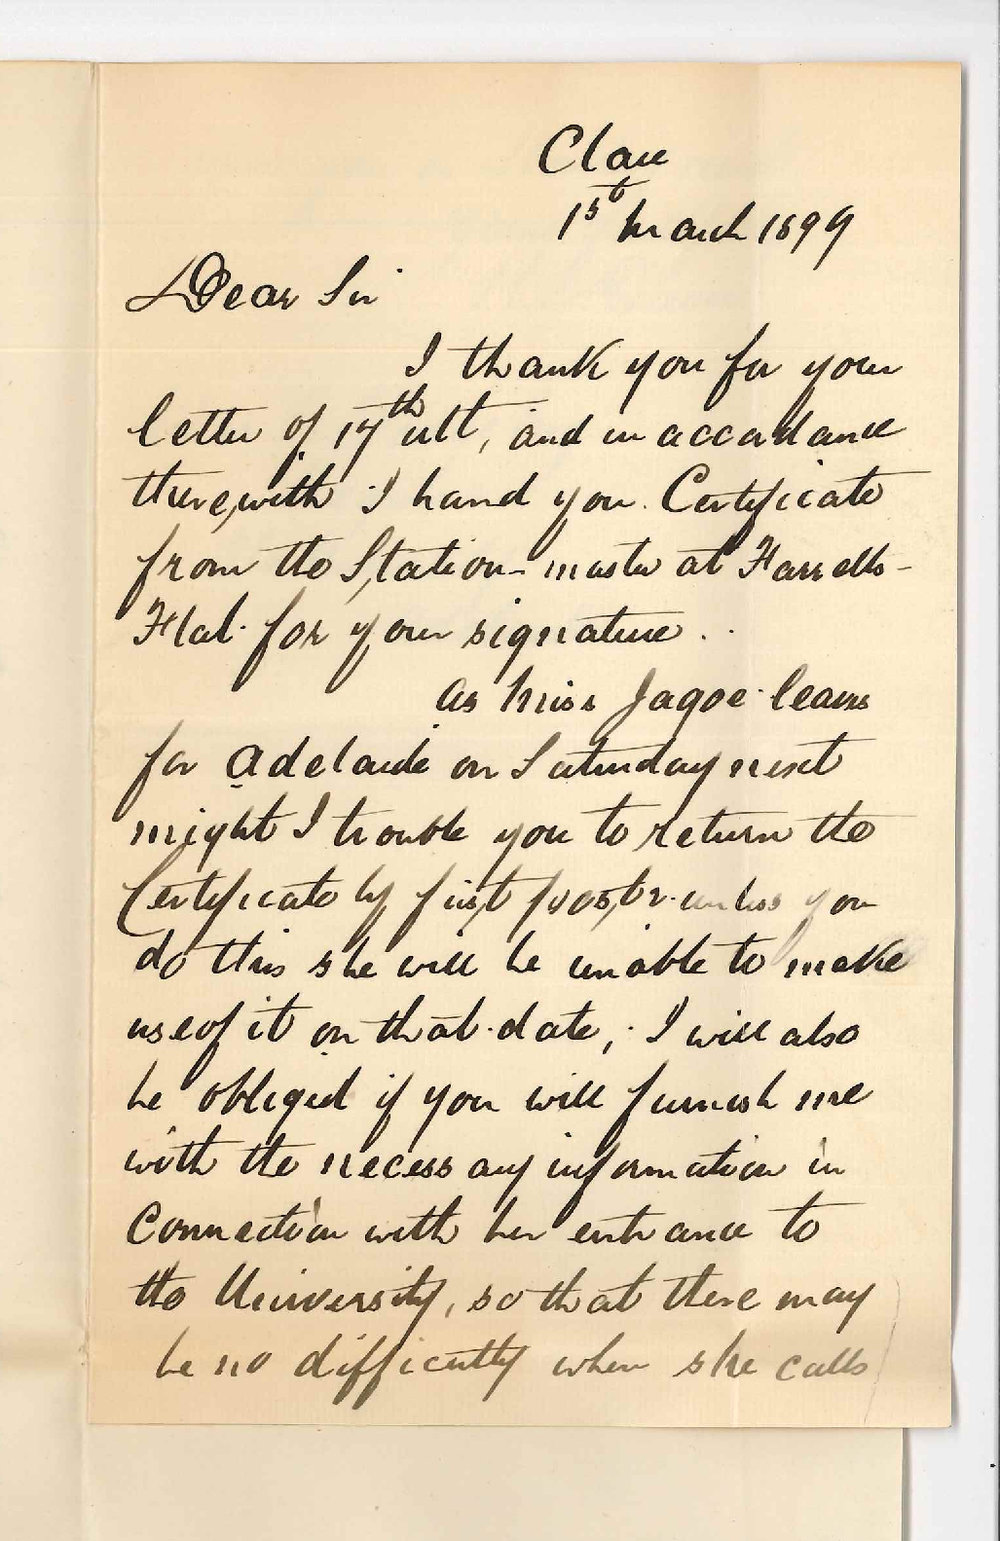 Clare
1st March 1899
Dear Sir
I thank you for your
letter of 17th ult, and in accordance
there,with I hand you Certificate
from the Station-master at Farrells-
Flat for your signature.
As Miss Jagoe leaves
for Adelaide on Saturday next
might I trouble you to return the
Certificate by first post unless you
do this she will be unable to make
use of it on that date, I will also
be obliged if you will furnish me
with the necessary information in
connection with her entrance to
the University, so that there may
be no difficulty when she calls